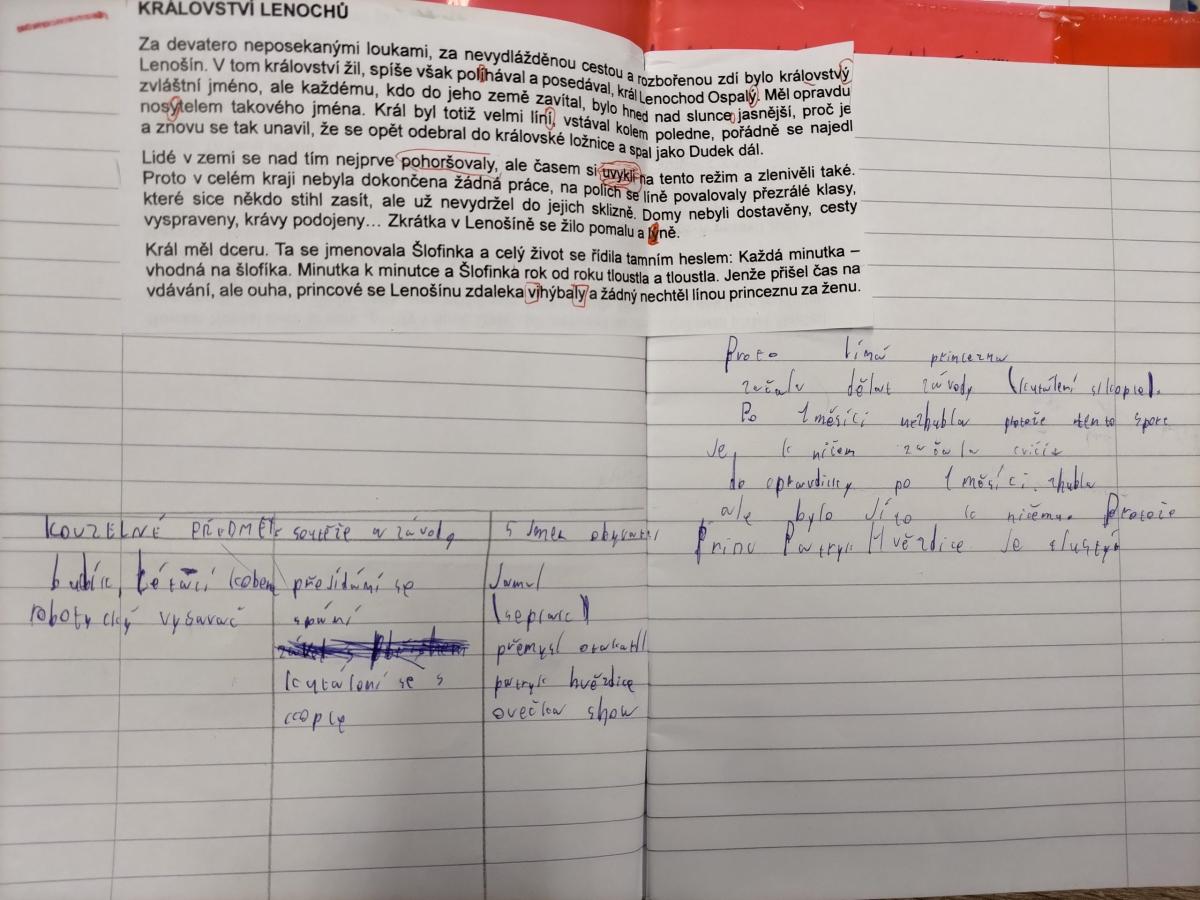 KRÁLOVSTVÍ LENOCHŮ
Za devatero neposekanými loukami, za nevydlážděnou cestou a rozbořenou zdí bylo královstvý
Lenošín. V tom království žil, spíše však políhával a posedával, král Lenochod Ospalý. Měl opravdu
zvláštní jméno, ale každému, kdo do jeho země zavítal, bylo hned nad slunce jasnější, proč je
nosýtelem takového jména. Král byl totiž velmi líní, vstával kolem poledne, pořádně se najedl
a znovu se tak unavil, že se opět odebral do královské ložnice a spal jako Dudek dál.
Lidé v zemi se nad tím nejprve pohoršovaly, ale časem si uvykli na tento režim a zlenivěli také.
Proto v celém kraji nebyla dokončena žádná práce, na polích se líně povalovaly přezrálé klasy,
které sice někdo stihl zasít, ale už nevydržel do jejich sklizně. Domy nebyli dostavěny, cesty
vyspraveny, krávy podojeny… Zkrátka v Lenošíně se žilo pomalu a lýně.
Král měl dceru. Ta se jmenovala Šlofinka a celý život se řídila tamním heslem: Každá minutka –
vhodná na šlofíka. Minutka k minutce a Šlofinka rok od roku tloustla a tloustla. Jenže přišel čas na
vdávání, ale ouha, princové se Lenošínu zdaleka vihýbaly a žádný nechtěl línou princeznu za ženu.
Proto límá princezna
začala dělat závody
Po 1 měsíci nezhubla protože tento sport
Je k ničem začala cvičit
do opravdicky po 1 měsíci zhubla
ale bylo Jí to k ničemu Protože
Princ Patryk Hvězdice Je tlustý
KOUZELNÉ PŘEDMĚTY soutěže a závody 5 Jmen obyvatel
budík, Létací koberc
robotycký vysavač
přesídání se
spání
kutálení se s
kopce
Jamal
přemysl otakar II
patryk hvězdice
ovečka show